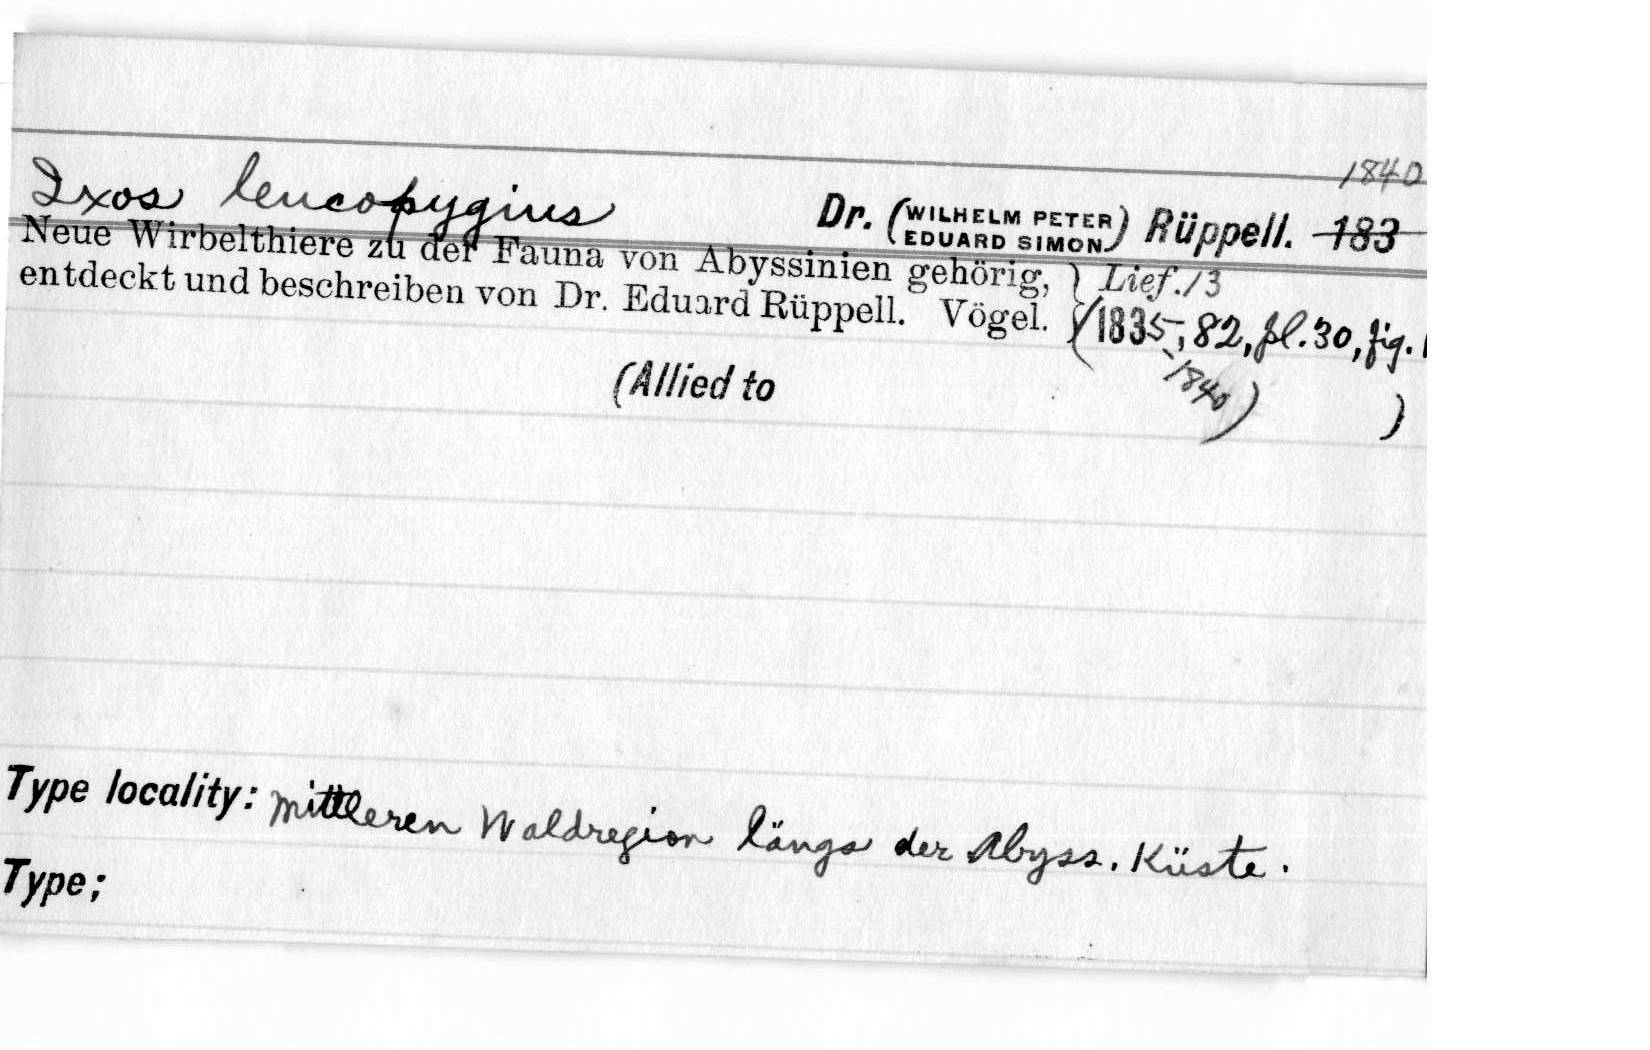 1840
Ixos leucopygius Dr. (WILHELM PETER EDUARD SIMON) Rüppell. 183
Neue Wirbelthiere zu der Fauna von Abyssinien gehörig, } Lief. 13
entdeckt und beschreiben von Dr. Eduard Rüppell. Vögel. } (1835-, 82, pl. 30, fig. 1
-1840)
(Allied to )
Type locality: mittleren Waldregion längs der Abyss. Küste.
Type;